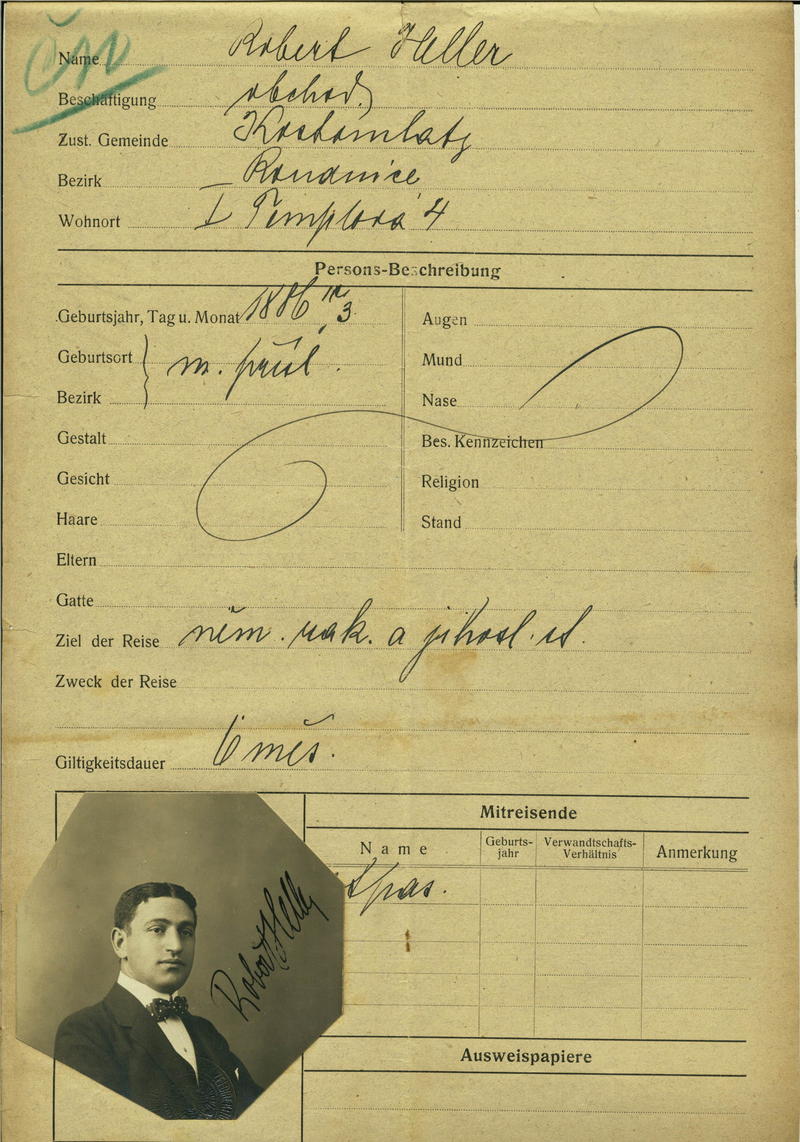 ČM
Name Robert Heller
Beschäftigung obchod.
Zust. Gemeinde Kostomlaty
Bezirk — Roudnice
Wohnort I Templová 4
Persons-Beschreibung
Geburtsjahr, Tag u. Monat 1886 3
Augen
Geburtsort m. přísl.
Mund
Bezirk
Nase
Gestalt
Bes. Kennzeichen
Gesicht
Religion
Haare
Stand
Eltern
Gatte
Ziel der Reise něm. rak. a jihosl. st.
Zweck der Reise
Giltigkeitsdauer 6 měs.
Mitreisende
Name
Geburts-
jahr
Verwandtschafts-
Verhältnis
Anmerkung
pas.
Robert Heller
Ausweispapiere